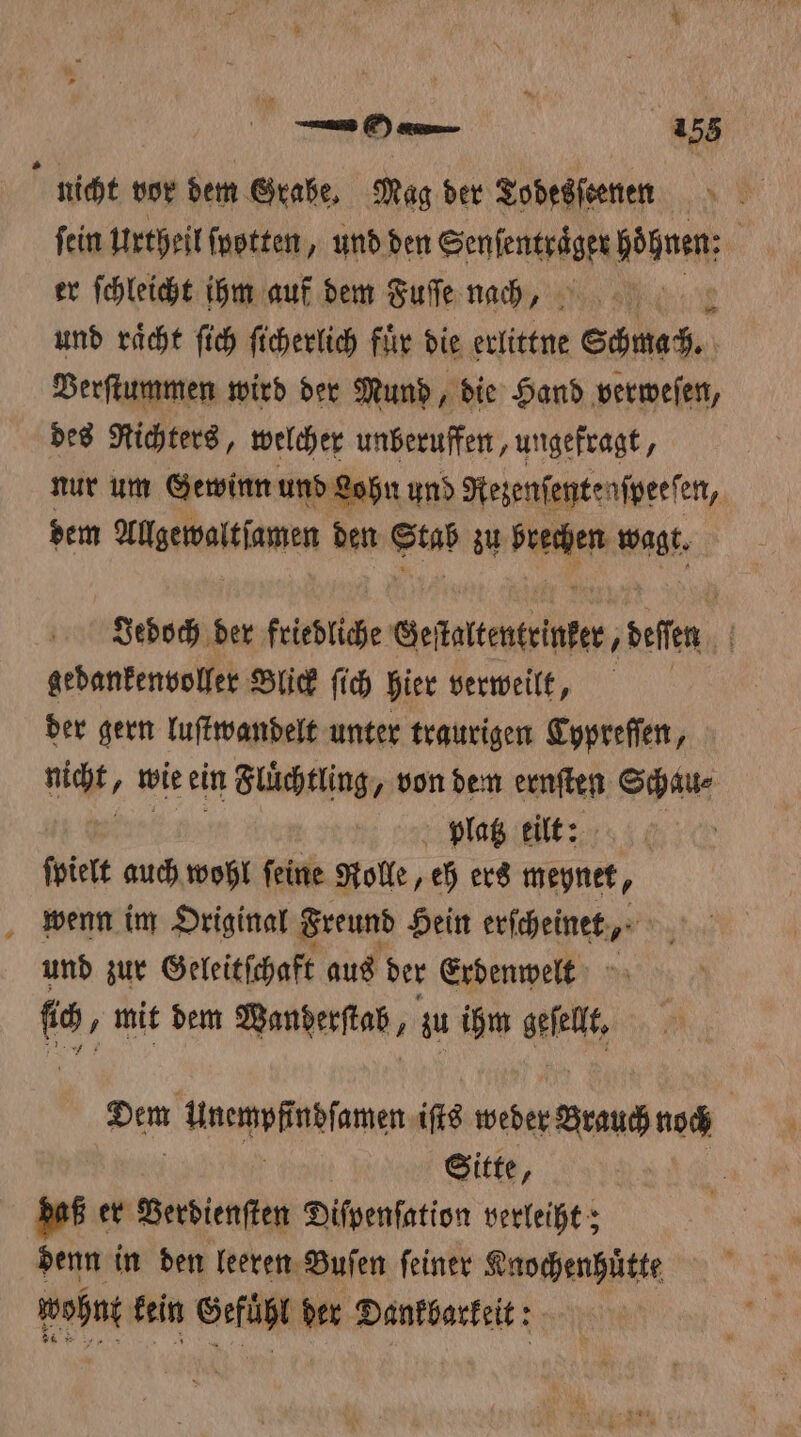 155
nicht vor dem Grabe. Mag der Todesſcenen
ſein Urtheil ſpotten, und den Senſenträger höhnen:
er ſchleicht ihm auf dem Fuſſe nach,
und rächt ſich ſicherlich für die erlittne Schmach.
Verſtummen wird der Mund, die Hand verweſen,
des Richters, welcher unberuffen, ungefragt,
nur um Gewinn und Lohn und Rezenſentenſpeeſen,
dem Allgewaltſamen den Stab zu brechen wagt.
Jedoch der friedliche Geſtaltentrinker, deſſen
gedankenvoller Blick ſich hier verweilt,
der gern luſtwandelt unter traurigen Cypreſſen,
nicht, wie ein Flüchtling, von dem ernſten Schau-
platz eilt:
ſpielt auch wohl ſeine Rolle, eh ers meynet,
wenn im Original Freund Hein erſcheinet,
und zur Geleitſchaft aus der Erdenwelt
ſich, mit dem Wanderſtab, zu ihm geſellt.
Dem Unempfindſamen iſts weder Brauch noch
Sitte,
daß er Verdienſten Diſpenſation verleiht;
denn in den leeren Buſen ſeiner Knochenhütte
wohnt kein Gefühl der Dankbarkeit: